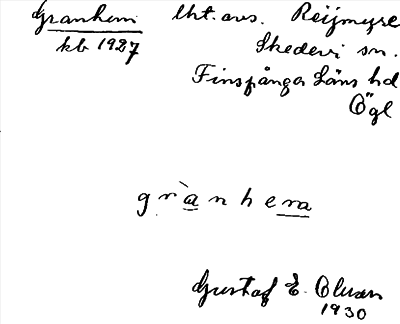 Granhem lht. avs. Reijmyre
kb 1927 Skedevi sn.
Finspånga Läns hd
Ögl
grànhera
Gustaf E. Olsson
1930